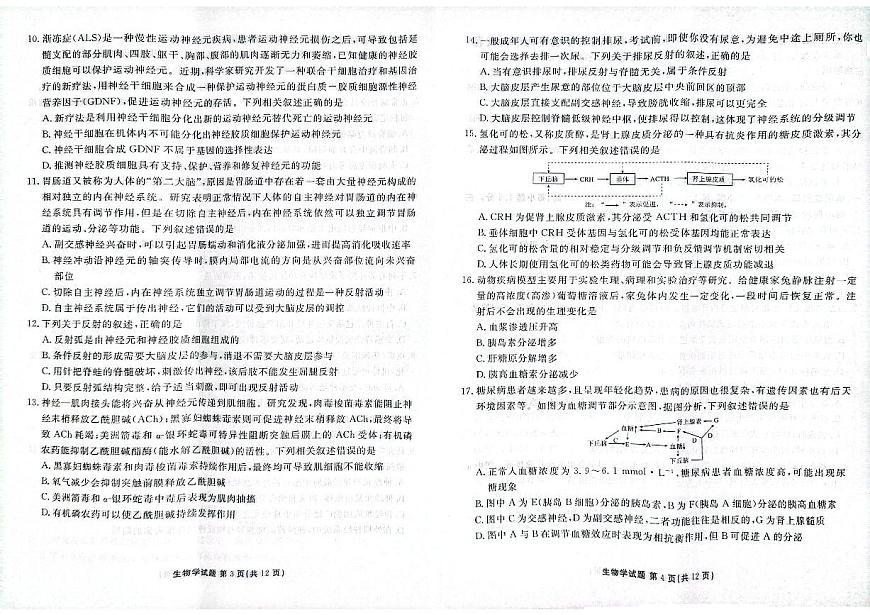 10. 渐冻症(ALS)是一种慢性运动神经元疾病,患者运动神经元损伤之后,可导致包括延
髓支配的部分肌肉、四肢、躯干、胸部、腹部的肌肉逐渐无力和萎缩,已知健康的神经胶
质细胞可以保护运动神经元。近期,科学家研究开发了一种联合干细胞治疗和基因治
疗的新疗法,用神经干细胞来合成一种保护运动神经元的蛋白质—胶质细胞源性神经
营养因子(GDNF),促进运动神经元的存活。下列相关叙述正确的是
A. 新疗法是利用神经干细胞分化出新的运动神经元替代死亡的运动神经元
B. 神经干细胞在机体内不可能分化出神经胶质细胞保护运动神经元
C. 神经干细胞合成 GDNF 不属于基因的选择性表达
D. 推测神经胶质细胞具有支持、保护、营养和修复神经元的功能
11. 胃肠道又被称为人体的“第二大脑”,原因是胃肠道中存在着一套由大量神经元构成的
相对独立的内在神经系统。研究表明正常情况下人体的自主神经对胃肠道的内在神
经系统具有调节作用,但是在切除自主神经后,内在神经系统依然可以独立调节胃肠
道的运动、分泌等功能。下列叙述错误的是
A. 副交感神经兴奋时,可以引起胃肠蠕动和消化液分泌加强,进而提高消化吸收速率
B. 神经冲动沿神经元的轴突传导时,膜内局部电流的方向是从兴奋部位流向未兴奋
部位
C. 切除自主神经后,内在神经系统独立调节胃肠道运动的过程是一种反射活动
D. 自主神经系统属于传出神经,它们的活动可以受到大脑皮层的调控
12. 下列关于反射的叙述,正确的是
A. 反射弧是由神经元和神经胶质细胞组成的
B. 条件反射的形成需要大脑皮层的参与,消退不需要大脑皮层参与
C. 用针把脊蛙的脊髓破坏,刺激传出神经,该后肢不能发生屈腿反射
D. 只要反射弧结构完整,给予适当刺激,即可出现反射活动
13. 神经—肌肉接头能将兴奋从神经元传递到肌细胞。研究发现,肉毒梭菌毒素能阻止神
经末梢释放乙酰胆碱(ACh);黑寡妇蜘蛛毒素则可促进神经末梢释放 ACh,最终将导
致 ACh 耗竭;美洲箭毒和 α-银环蛇毒可特异性阻断突触后膜上的 ACh 受体;有机磷
农药能抑制乙酰胆碱酯酶(能水解乙酰胆碱)的活性。下列相关叙述错误的是
A. 黑寡妇蜘蛛毒素和肉毒梭菌毒素持续作用后,最终均可导致肌细胞不能收缩
B. 氧气减少会抑制突触前膜释放乙酰胆碱
C. 美洲箭毒和 α-银环蛇毒中毒后表现为肌肉抽搐
D. 有机磷农药可以使乙酰胆碱持续发挥作用
生物学试题 第 3 页(共 12 页)
14. 一般成年人可有意识的控制排尿,考试前,即使你没有尿意,为避免中途上厕所,你也
可能会选择去排一次尿。下列关于排尿反射的叙述,正确的是
A. 当有意识排尿时,排尿反射与脊髓无关,属于条件反射
B. 大脑皮层产生尿意的部位位于大脑皮层中央前回区的顶部
C. 大脑皮层直接支配副交感神经,导致膀胱收缩,排尿可以更完全
D. 大脑皮层控制脊髓低级神经中枢,使排尿得以控制,这体现了神经系统的分级调节
15. 氢化可的松,又称皮质醇,是肾上腺皮质分泌的一种具有抗炎作用的糖皮质激素,其分
泌过程如图所示。下列相关叙述错误的是
下丘脑 CRH 垂体 ACTH 肾上腺皮质 氢化可的松
注:“→”表示促进,“⇢”表示抑制。
A. CRH 为促肾上腺皮质激素,其分泌受 ACTH 和氢化可的松共同调节
B. 垂体细胞中 CRH 受体基因与氢化可的松受体基因均能正常表达
C. 氢化可的松含量的相对稳定与分级调节和负反馈调节机制密切相关
D. 人体长期使用氢化可的松类药物可能会导致肾上腺皮质功能减退
16. 动物疾病模型主要用于实验生理、病理和实验治疗等研究。给健康家兔静脉注射一定
量的高浓度(高渗)葡萄糖溶液后,家兔体内发生一定变化,一段时间后恢复正常。注
射后不会出现的生理变化是
A. 血浆渗透压升高
B. 胰岛素分泌增多
C. 肝糖原分解增多
D. 胰高血糖素分泌减少
17. 糖尿病患者越来越多,且呈现年轻化趋势,患病的原因也很复杂,有遗传因素也有后天
环境因素等。如图为血糖调节部分示意图,据图分析,下列叙述错误的是
肾上腺素 G
血糖 B F D
下丘脑 C E A 血糖 D
下丘脑
A. 正常人血糖浓度为 3.9~6.1 mmol·L⁻¹,糖尿病患者血糖浓度高,可能出现尿
糖现象
B. 图中 A 为 E(胰岛 B 细胞)分泌的胰岛素,B 为 F(胰岛 A 细胞)分泌的胰高血糖素
C. 图中 C 为交感神经,D 为副交感神经,二者功能往往是相反的,G 为肾上腺髓质
D. 图中 A 与 B 在调节血糖效应时表现为相抗衡作用,但 B 可促进 A 的分泌
生物学试题 第 4 页(共 12 页)